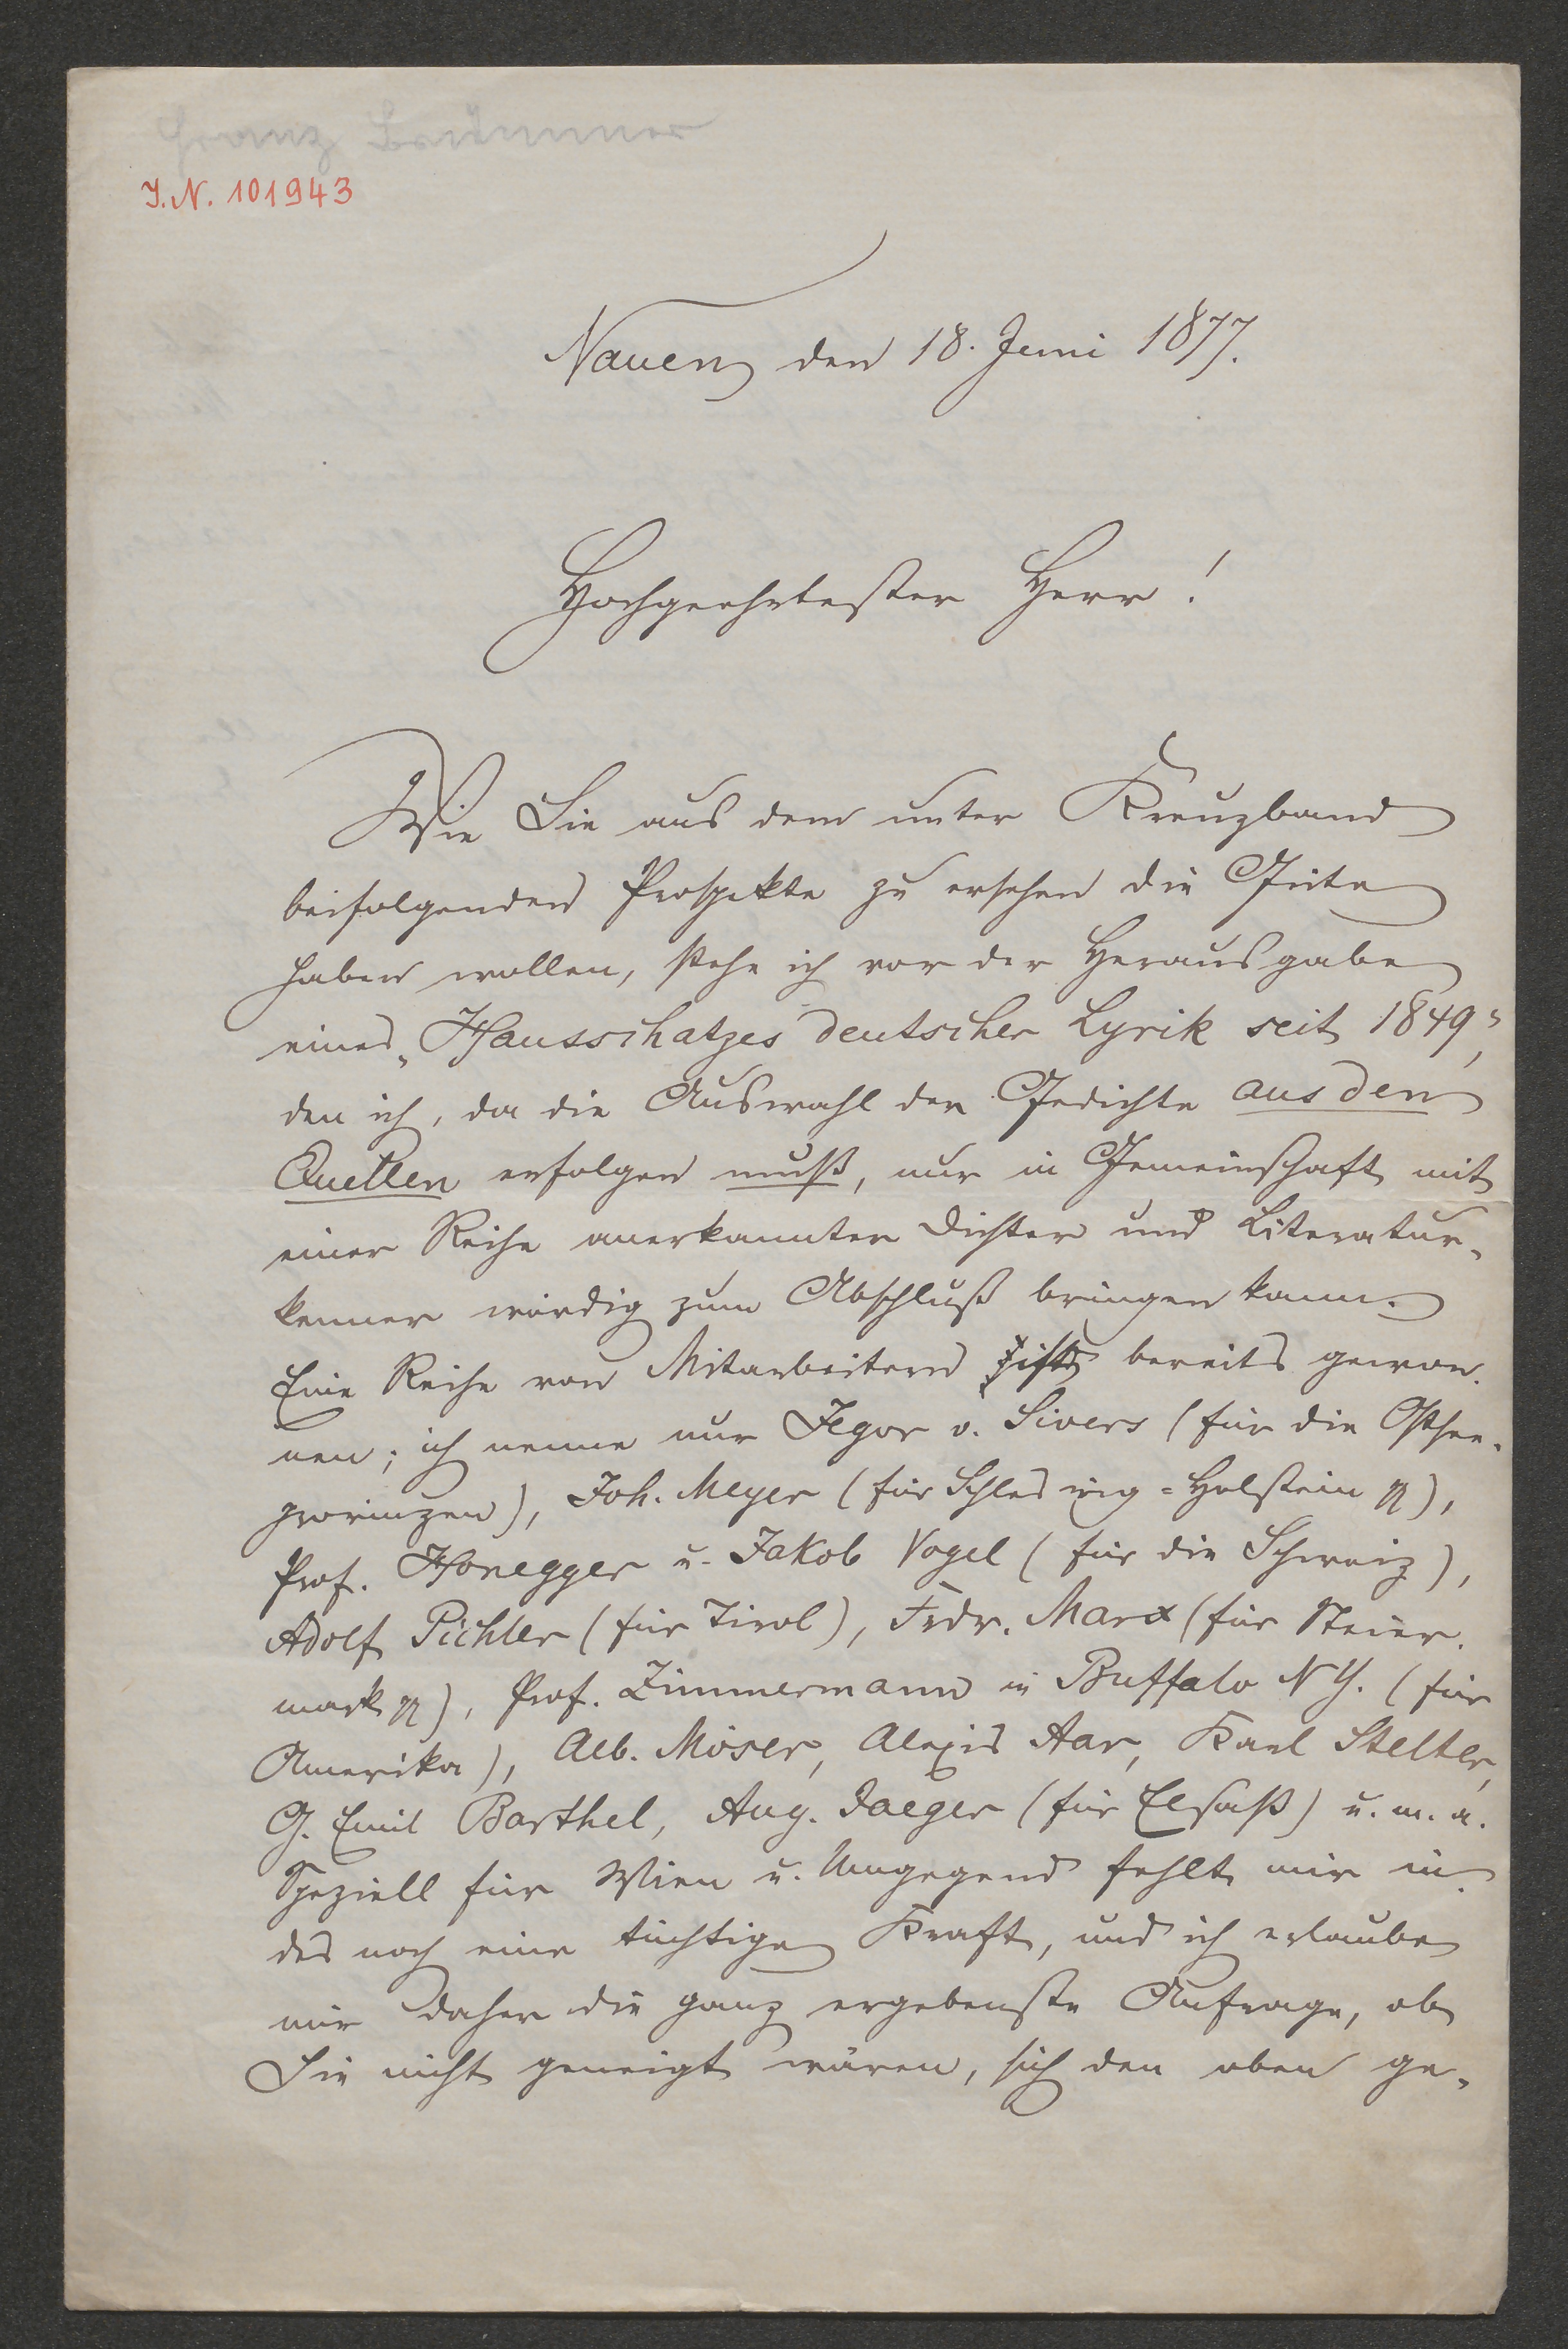 Franz Brümmer
I.N. 101943
Nauen den 18. Juni 1877.
Hochgeehrtester Herr!
Wie Sie aus dem unter Kreuzband
beifolgenden Prospekte zu ersehen die Güte
haben wollen, stehe ich vor der Herausgabe
eines „Hausschatzes deutscher Lyrik seit 1849“,
den ich, da die Auswahl der Gedichte aus den
Quellen erfolgen muß, nur in Gemeinschaft mit
einer Reihe anerkannter Dichter und Literatur-
kenner würdig zum Abschluß bringen kann.
Eine Reihe von Mitarbeitern ist bereits gewon-
nen; ich nenne nur Jegor v. Sivers (für die Ostsee-
provinzen), Joh. Meyer (für Schleswig-Holstein pp),
Prof. Honegger u. Jakob Vogel (für die Schweiz),
Adolf Pichler (für Tirol), Frdr. Marx (für Steier-
mark pp), Prof. Zimmermann in Buffalo N Y. (für
Amerika), Alb. Möser, Alexis Aar, Karl Stelter,
G. Emil Barthel, Aug. Jaeger (für Elsaß) u. m. a.
Speziell für Wien u. Umgegend fehlt mir in-
des noch eine tüchtige Kraft, und ich erlaube
mir daher die ganz ergebenste Anfrage, ob
Sie nicht geneigt wären, sich den oben ge-